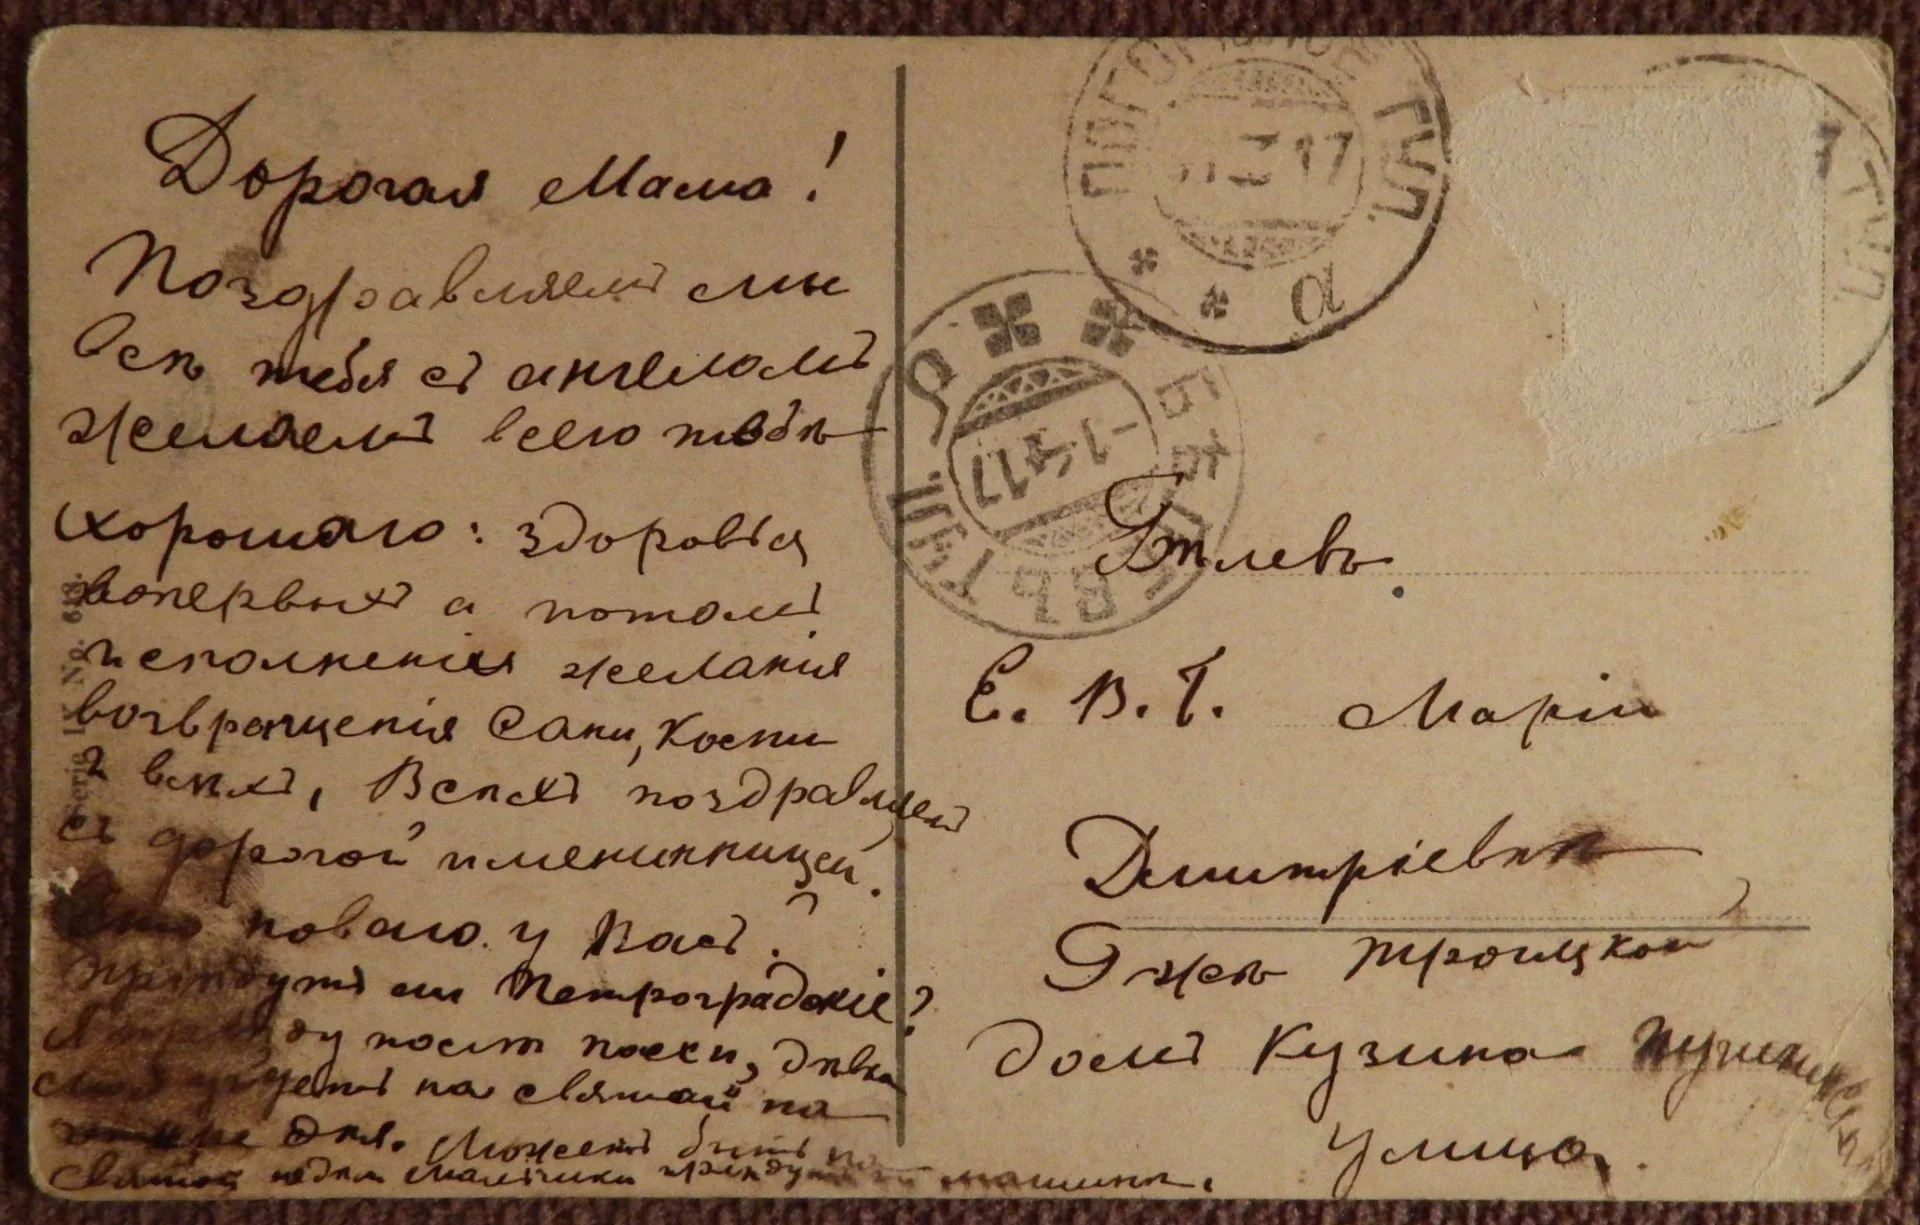 Дорогая Мама!
Поздравляемъ мы
всѣ тебя съ ангеломъ
желаемъ всего тебѣ
хорошаго: здоровья
вопервыхъ а потомъ
исполненія желанія
возвращенія Сани, Кости
и всѣхъ, Всѣхъ поздравляемъ
съ дорогой именинницей.
новаго у Васъ?
Пріѣдутъ ли Петроградскіе?
послѣ пасхи, дѣвка
на святой на
дня. Можетъ быть на
святой мальчики машины.
Serie IX No. 613.
ТУЛ.
а
17
ТУЛ.
БѢЛЕВЪ ТУЛ.
-1 4 17
Бѣлевъ
Е. В. Б. Маріи
Дмитріевнѣ
Яжѣ Троицкой
домъ Кузина Пушкинская
улица.